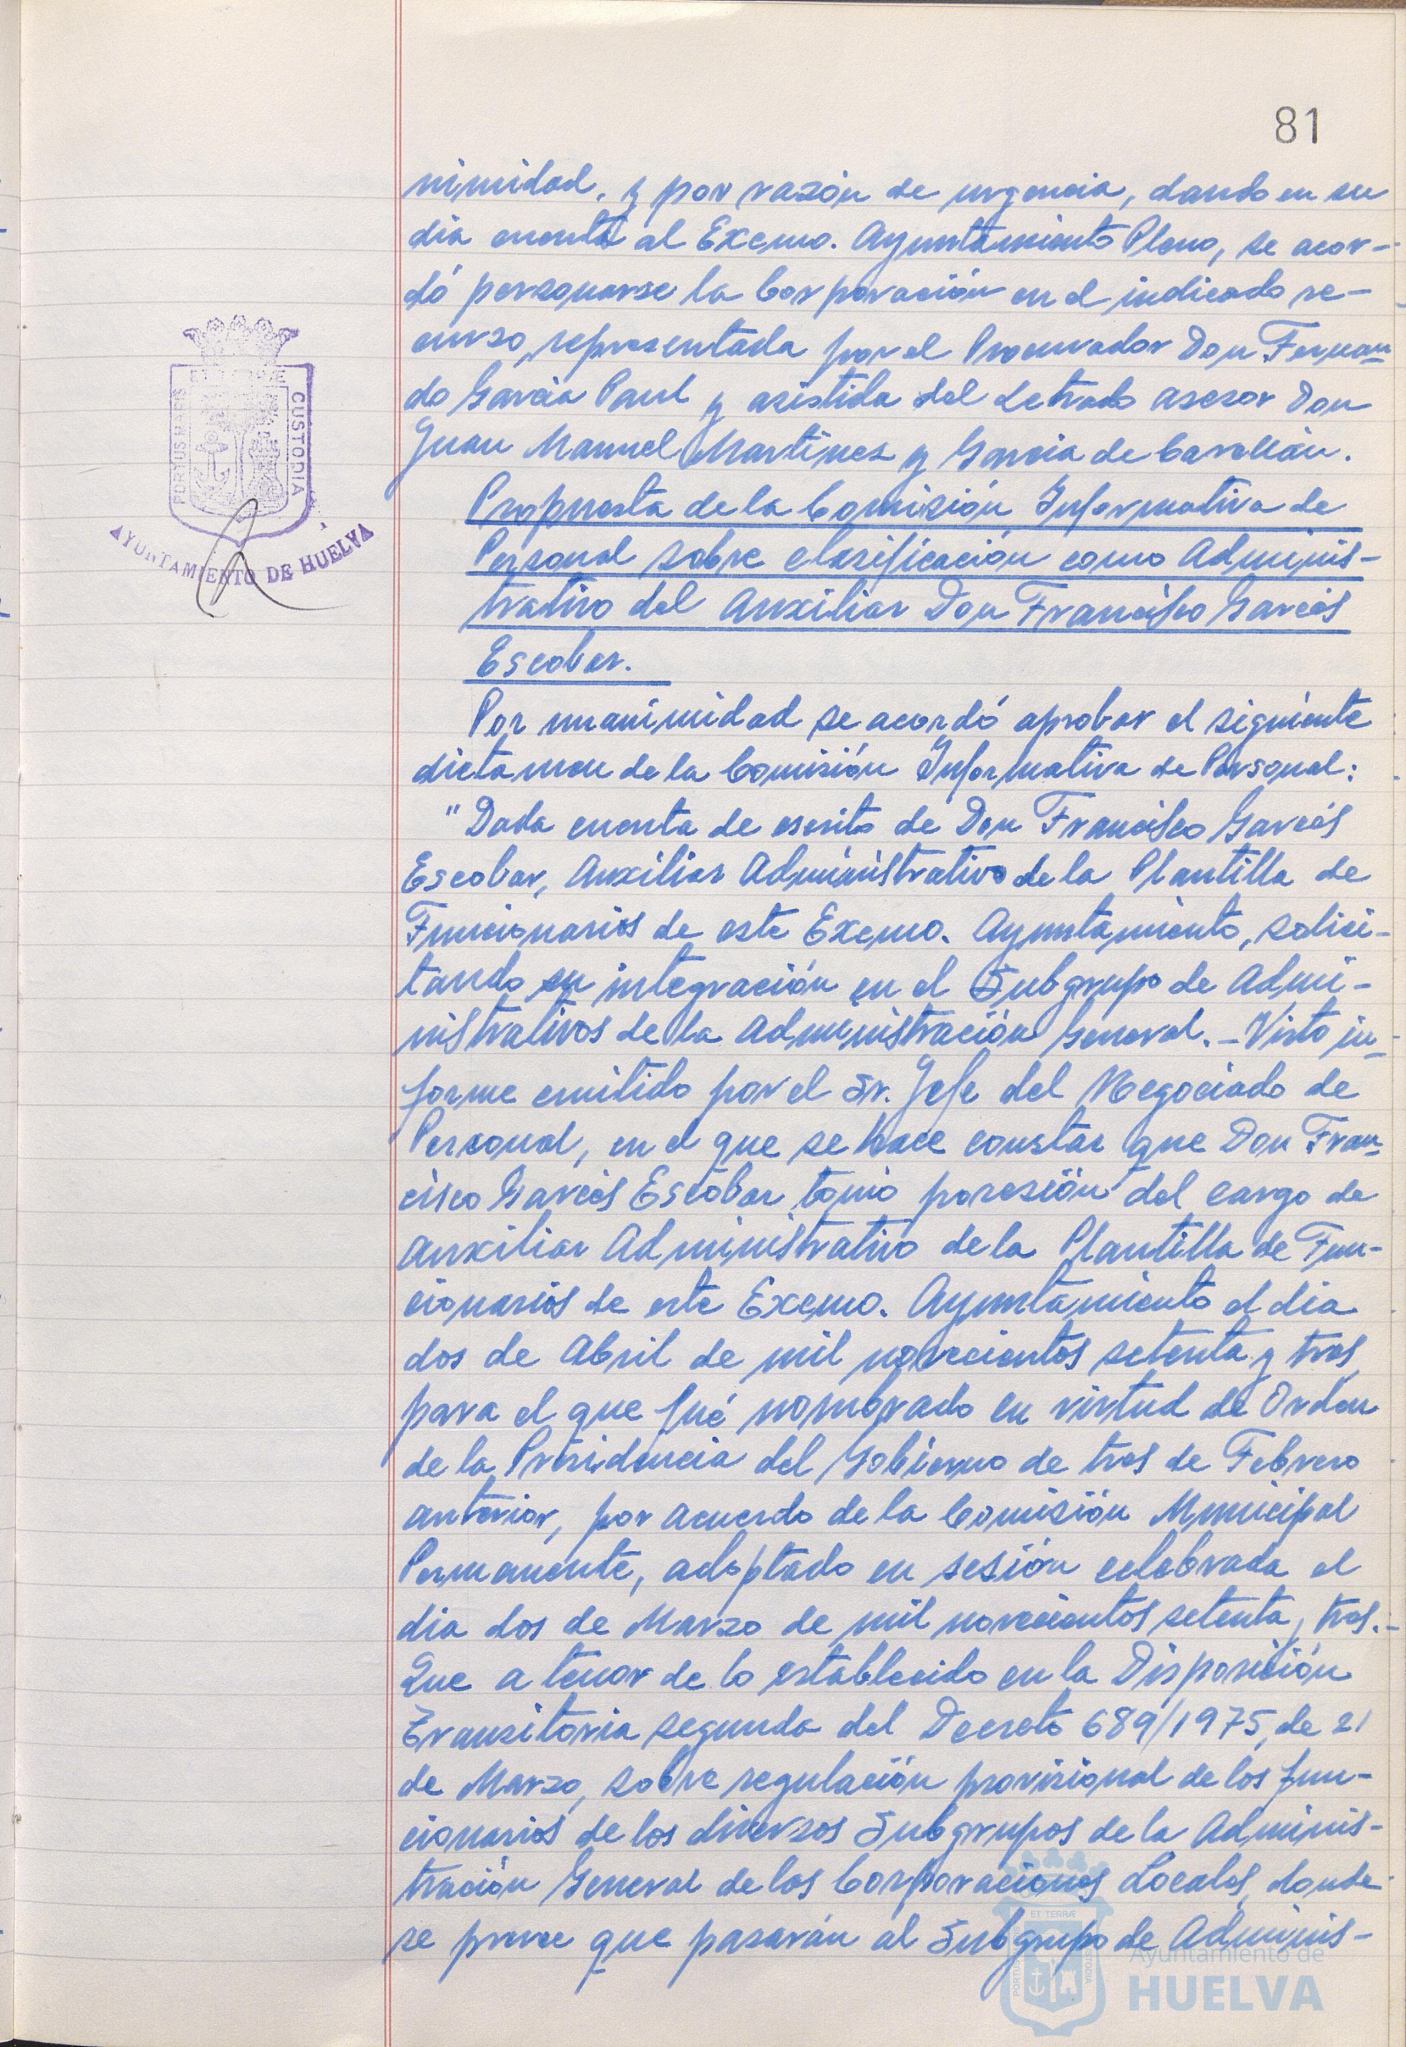 81
nimidad, y por razón de urgencia, dando en su
dia cuenta al Excmo. Ayuntamiento Pleno, se acor-
dó personarse la Corporación en el indicado re-
curso, representada por el Procurador Don Fernan-
do García Paul y asistida del Letrado asesor Don
Juan Manuel Martinez y Garcia de
Propuesta de la Comisión Informativa de
Personal sobre clasificación como Adminis-
trativo del Auxiliar Don Francisco Garcés
Escobar.
Por unanimidad se acordó aprobar el siguiente
dictamen de la Comisión Informativa de Personal:
"Dada cuenta de escrito de Don Francisco Garcés
Escobar, Auxiliar Administrativo de la Plantilla de
Funcionarios de este Excmo. Ayuntamiento, solici-
tando su integración en el Subgrupo de Admi-
nistrativos de la Administración General. - Visto in-
forme emitido por el Sr. Jefe del Negociado de
Personal, en el que se hace constar que Don Fran-
cisco Garcés Escobar tomó posesión del cargo de
Auxiliar Administrativo de la Plantilla de Fun-
cionarios de este Excmo. Ayuntamiento el dia
dos de Abril de mil novecientos setenta y tres,
para el que fué nombrado en virtud de Orden
de la Presidencia del Gobierno de tres de Febrero
anterior, por acuerdo de la Comisión Municipal
Permanente, adoptado en sesión celebrada el
dia dos de Marzo de mil novecientos setenta y tres.-
Que a tenor de lo establecido en la Disposición
Transitoria segunda del Decreto 689/1975, de 21
de Marzo, sobre regulación provisional de los fun-
cionarios de los diversos Subgrupos de la Adminis-
tración General de las Corporaciones Locales, donde
se prevee que pasarán al Subgrupo de Adminis-
PORTUS MARIS
ET TERRÆ
CUSTODIA
AYUNTAMIENTO DE HUELVA
ET TERRÆ
Ayuntamiento de
HUELVA